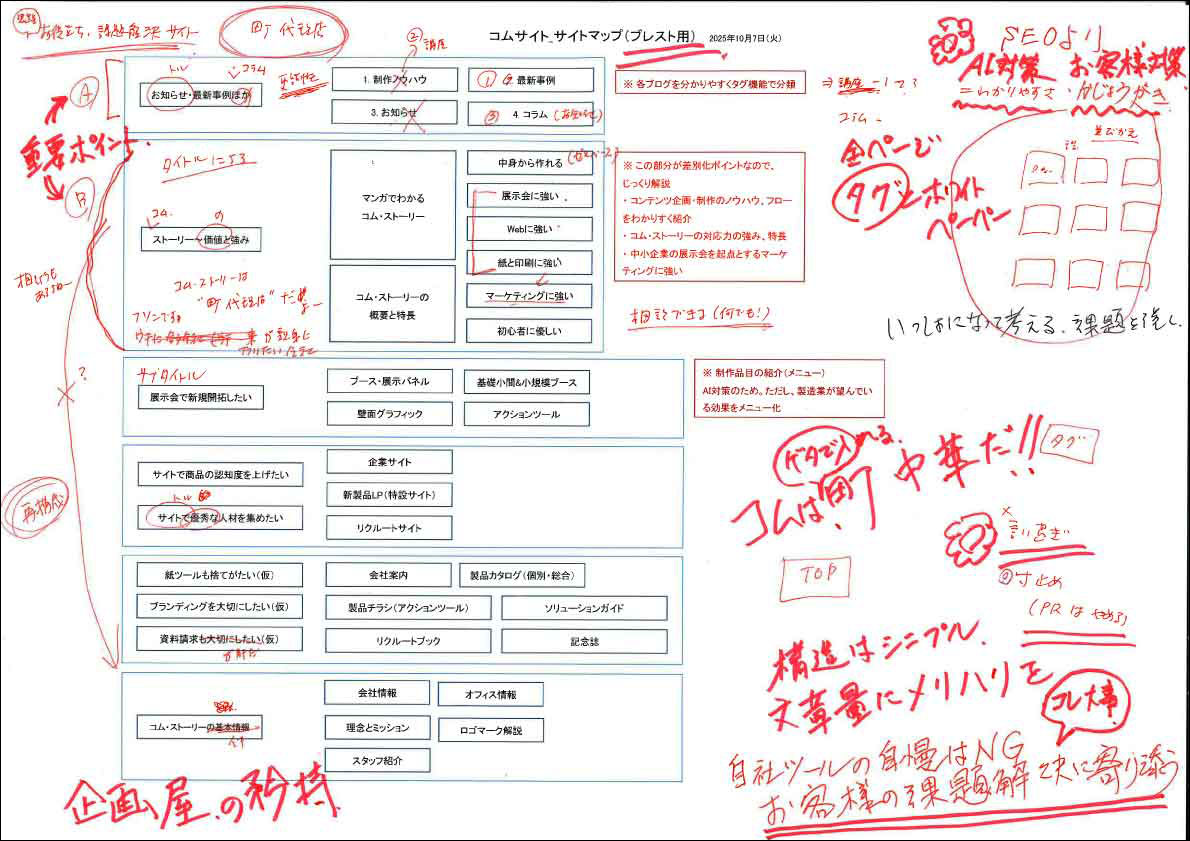 お役立ち、課題解決サイト
町代理店
コムサイト_サイトマップ(ブレスト用) 2025年10月7日(火)
SEOより
AI対策 お客様対策
=わかりやすさ・かんじょうがき
② 講座
トル
コラム
A
お知らせ・最新事例ほか
1. 制作ノウハウ
① 2. 最新事例
3. お知らせ
③ 4. コラム
※ 各ブログを分かりやすくタグ機能で分類
⇒ 講座 - 1 2 3
コム
重要ポイント
B
タイトルに
コム.
の
ストーリー~価値と強み
コム・ストーリーは
"町代理店"だ
マンガでわかる
コム・ストーリー
コム・ストーリーの
概要と特長
中身から作れる
展示会に強い
Webに強い
紙と印刷に強い
マーケティングに強い
初心者に優しい
※ この部分が差別化ポイントなので、
じっくり解説
・コンテンツ企画・制作のノウハウ、フロー
をわかりすく紹介
・コム・ストーリーの対応力の強み、特長
・中小企業の展示会を起点とするマー
ケティングに強い
相談できる(何でも!)
全ページ
タグとホワイト
ペーパー
並びかえ
いっしょになって考える、課題を
サブタイトル
展示会で新規開拓したい
ブース・展示パネル
基礎小間&小規模ブース
壁面グラフィック
アクションツール
※ 制作品目の紹介(メニュー)
AI対策のため。ただし、製造業が望んでい
る効果をメニュー化
?
再構成
サイトで商品の認知度を上げたい
トル
サイトで優秀な人材を集めたい
企業サイト
新製品LP(特設サイト)
リクルートサイト
ゲタで入れる。
コムは町中華だ!!
タグ
TOP
×言いすぎ
◎寸止め
(PRは やめろ)
紙ツールも捨てがたい(仮)
ブランディングを大切にしたい(仮)
資料請求も大切にしたい(仮)
会社案内
製品カタログ(個別・総合)
製品チラシ(アクションツール)
ソリューションガイド
リクルートブック
記念誌
構造はシンプル.
文章量にメリハリを
コレ大事
コム・ストーリーの基本情報
会社情報
オフィス情報
理念とミッション
ロゴマーク解説
スタッフ紹介
企画屋の矜持
自社ツールの自慢はNG
お客様の課題解決に寄り添う